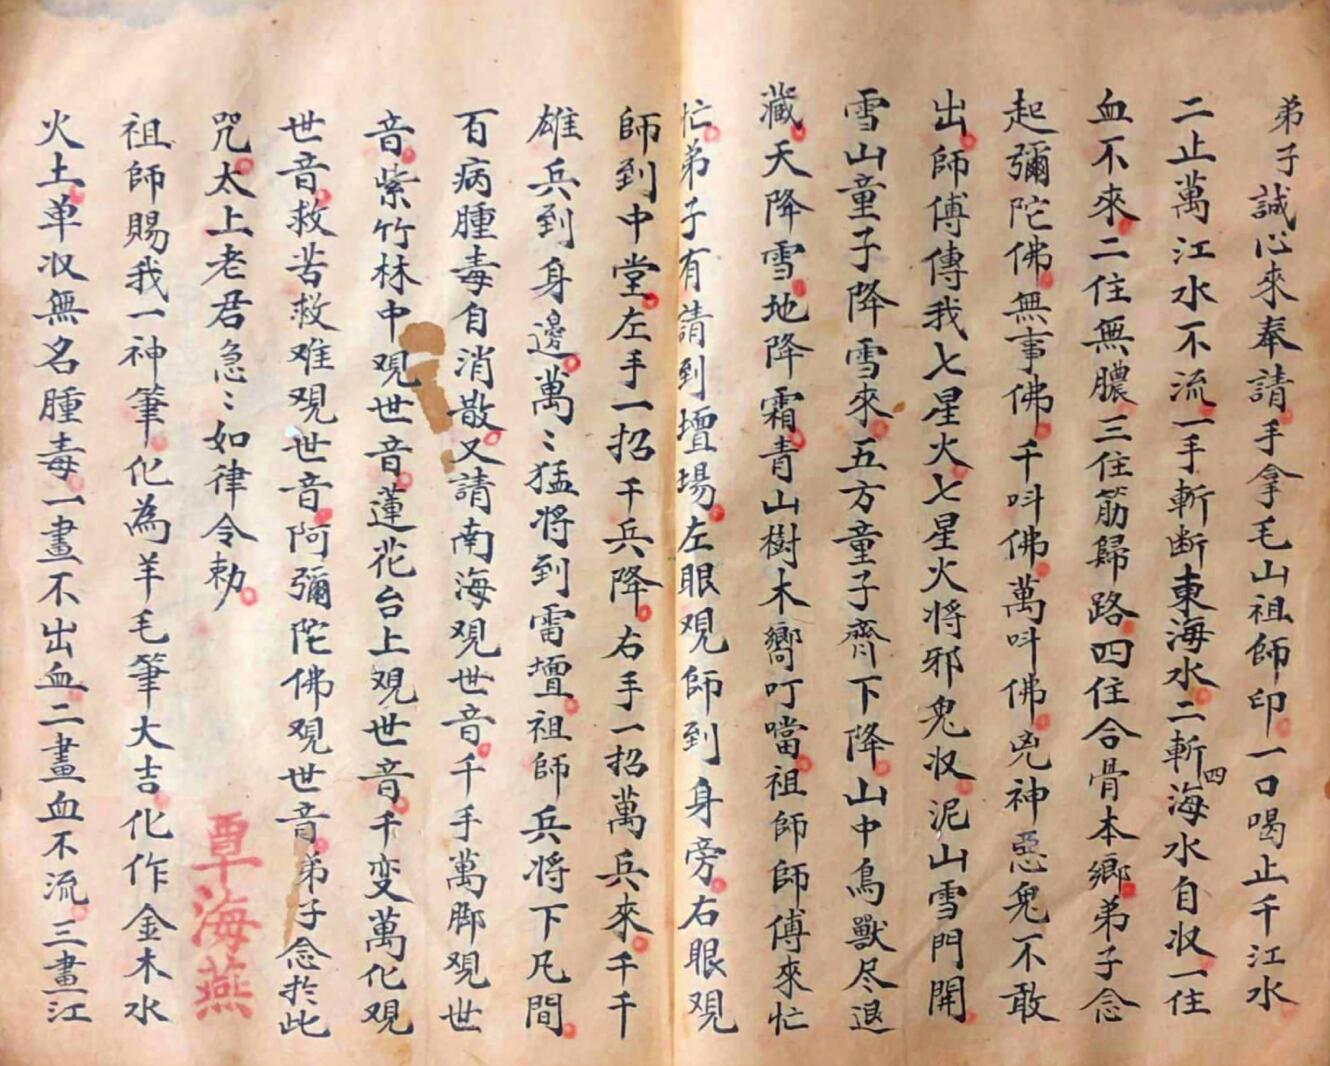 弟子誠心來奉請手拿毛山祖師印一口喝止千江水
二止萬江水不流一手斬断東海水二斬四海水自収一住
血不來二住無膿三住筋歸路四住合骨本鄉弟子念
起彌陀佛無事佛千呌佛萬呌佛兇神惡鬼不敢
出師傅傳我七星火七星火将邪鬼収泥山雪門開
雪山童子降雪來五方童子齊下降山中鳥獸尽退
藏天降雪地降霜青山樹木嚮叮噹祖師師傅來忙
忙弟子有請到壇場左眼覌師到身旁右眼覌
師到中堂左手一招千兵降右手一招萬兵來千千
雄兵到身邊萬〻猛将到雷壇祖師兵将下凡間
百病腫毒自消散又請南海覌世音千手萬脚覌世
音紫竹林中覌世音蓮花台上覌世音千变萬化覌
世音救苦救难覌世音阿彌陀佛覌世音弟子念於此
咒太上老君急〻如律令勅
覃海燕
祖師賜我一神筆化為羊毛筆大吉化作金木水
火土单収無名腫毒一畫不出血二畫血不流三畫江